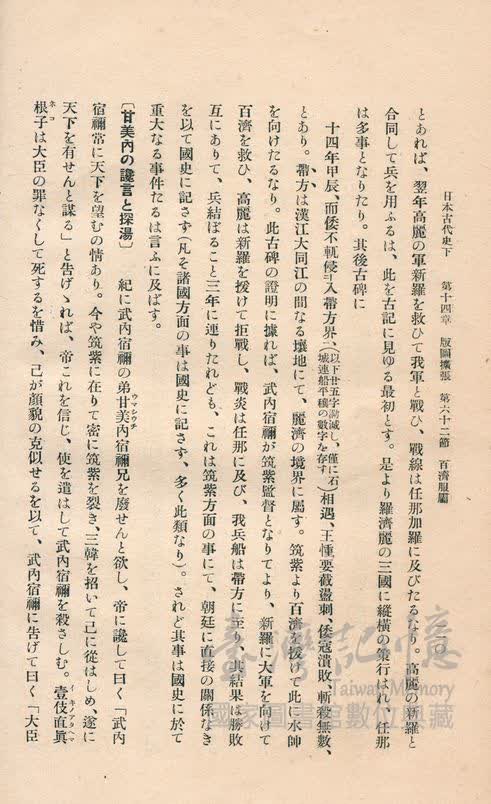 日本古代史下　第十四章　版圖擴張　第六十二節　百濟服屬　二一〇
とあれば、翌年高麗の軍新羅を救ひて我軍と戰ひ、戰線は任那加羅に及びたるなり。高麗の新羅と
合同して兵を用ふるは、此を古記に見ゆる最初とす。是より羅濟麗の三國に縱橫の策行はれ、任那
は多事となりたり。其後古碑に
十四年甲辰、而倭不軌侵㆓入帶方界㆒（以下廿五字泐滅し、僅に石城連船平穰の數字を存す）相遇、王憧要截盪刺、倭寇潰敗、斬殺無數、
とあり。帶方は漢江大同江の間なる壤地にて、麗濟の境界に屬す。筑紫より百濟を援けて此に水師
を向けたるなり。此古碑の證明に據れば、武內宿禰が筑紫監督となりてより、新羅に大軍を向けて
百濟を救ひ、高麗は新羅を援けて拒戰し、戰炎は任那に及び、我兵船は帶方に至り、其結果は勝敗
互にありて、兵結ぼること三年に連りたれども、これは筑紫方面の事にて、朝廷に直接の關係なき
を以て國史に記さず（凡そ諸國方面の事は國史に記さず、多く此類なり）。されど其事は國史に於て
重大なる事件たるは言ふに及ばす。
〔甘美內の讒言と探湯〕　紀に武內宿禰の弟甘美內宿禰兄を廢せんと欲し、帝に讒して曰く「武內
ウマシウチ
宿禰常に天下を望むの情あり。今や筑紫に在りて密に筑紫を裂き、三韓を招いて己に從はしめ、遂に
天下を有せんと謀る」と告げゝれば、帝これを信じ、使を遣はして武內宿禰を殺さしむ。壹伎直眞
イキノアタヘマ
根子は大臣の罪なくして死するを惜み、己が顏貌の克似せるを以て、武內宿禰に告げて曰く「大臣
ネコ
臺灣記憶
Taiwan Memory
國家圖書館數位典藏